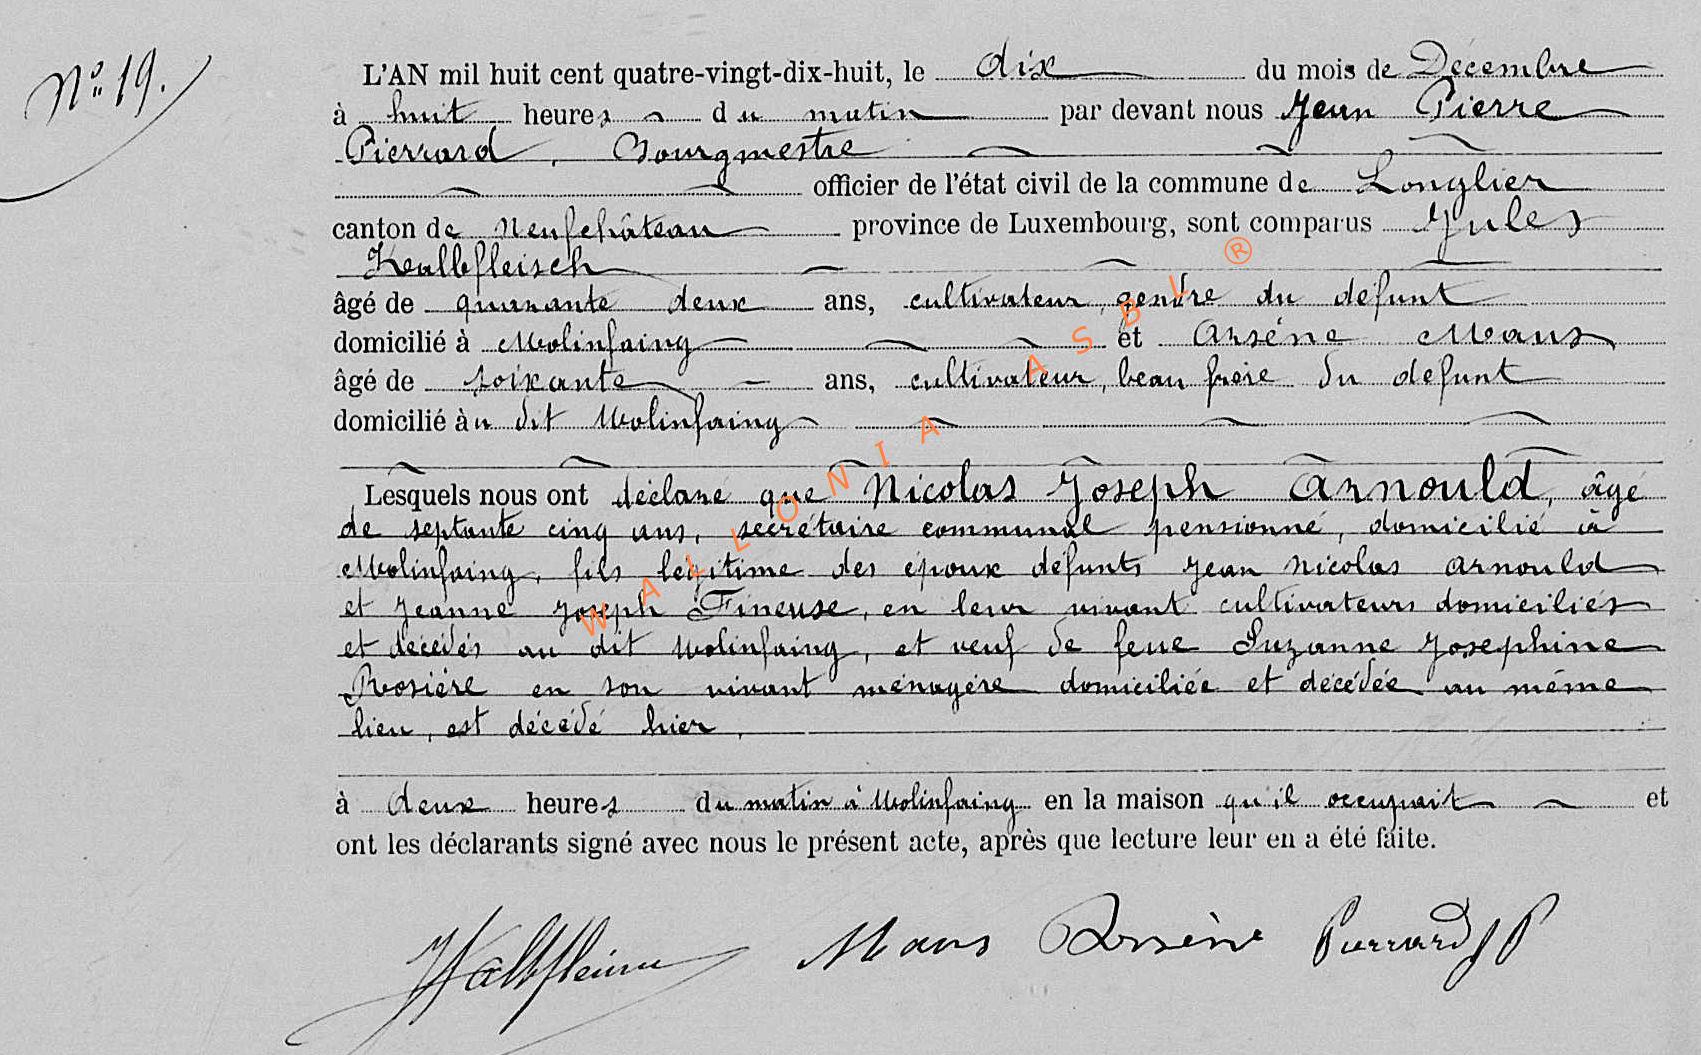 N° 19.
L'AN mil huit cent quatre-vingt-dix-huit, le dix du mois de Décembre
à huit heures du matin par devant nous Jean Pierre
Pierrard, Bourgmestre
officier de l'état civil de la commune de Longlier
canton de Neufchâteau province de Luxembourg, sont comparus Jules
Kalbfleisch
âgé de quarante deux ans, cultivateur, gendre du défunt
domicilié à Molinfaing et Arsène Maus
âgé de soixante ans, cultivateur, beau frère du défunt
domicilié au dit Molinfaing
Lesquels nous ont déclaré que Nicolas Joseph Arnould, âgé
de septante cinq ans, secrétaire communal pensionné, domicilié à
Molinfaing, fils légitime des époux défunts Jean Nicolas Arnould
et Jeanne Joseph Fineuse, en leur vivant cultivateurs domiciliés
et décédés au dit Molinfaing, et veuf de feue Suzanne Josephine
Rosière en son vivant ménagère domiciliée et décédée au même
lieu, est décédé hier,
à deux heures du matin à Molinfaing en la maison qu'il occupait et
ont les déclarants signé avec nous le présent acte, après que lecture leur en a été faite.
Maus Arsène Pierrard JP
WALLONIA ASBL ®